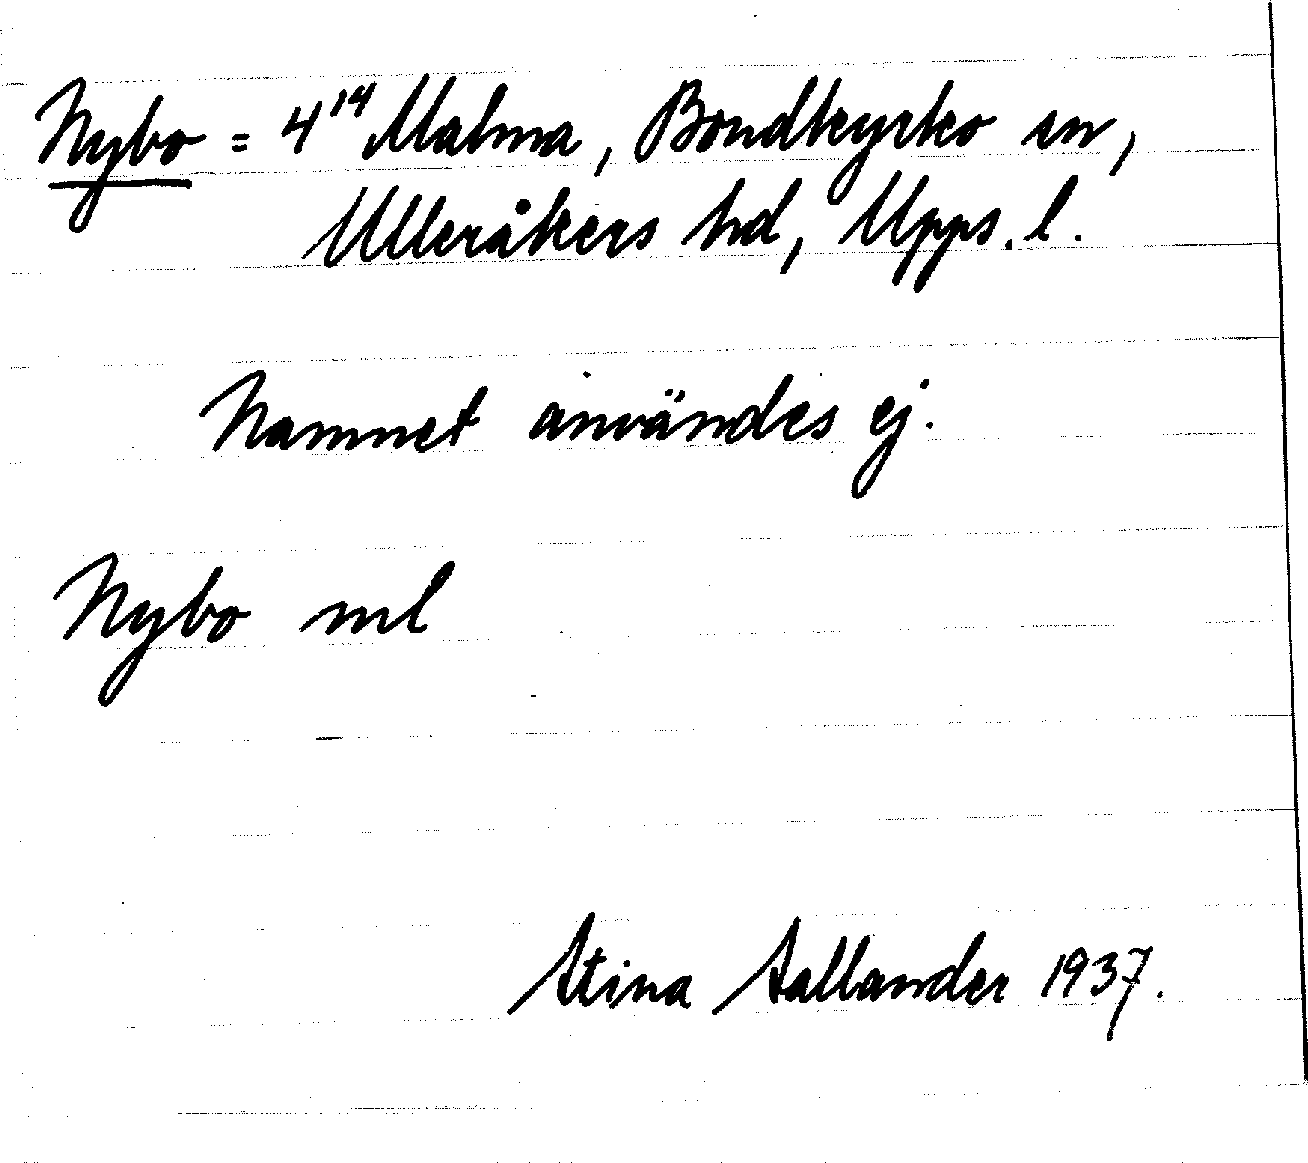 Nybo = 4¹⁴ Malma, Bondkyrko sn,
Ulleråkers hd, Upps. l.
Namnet användes ej.
Nybo ml
Stina Sallander 1937.